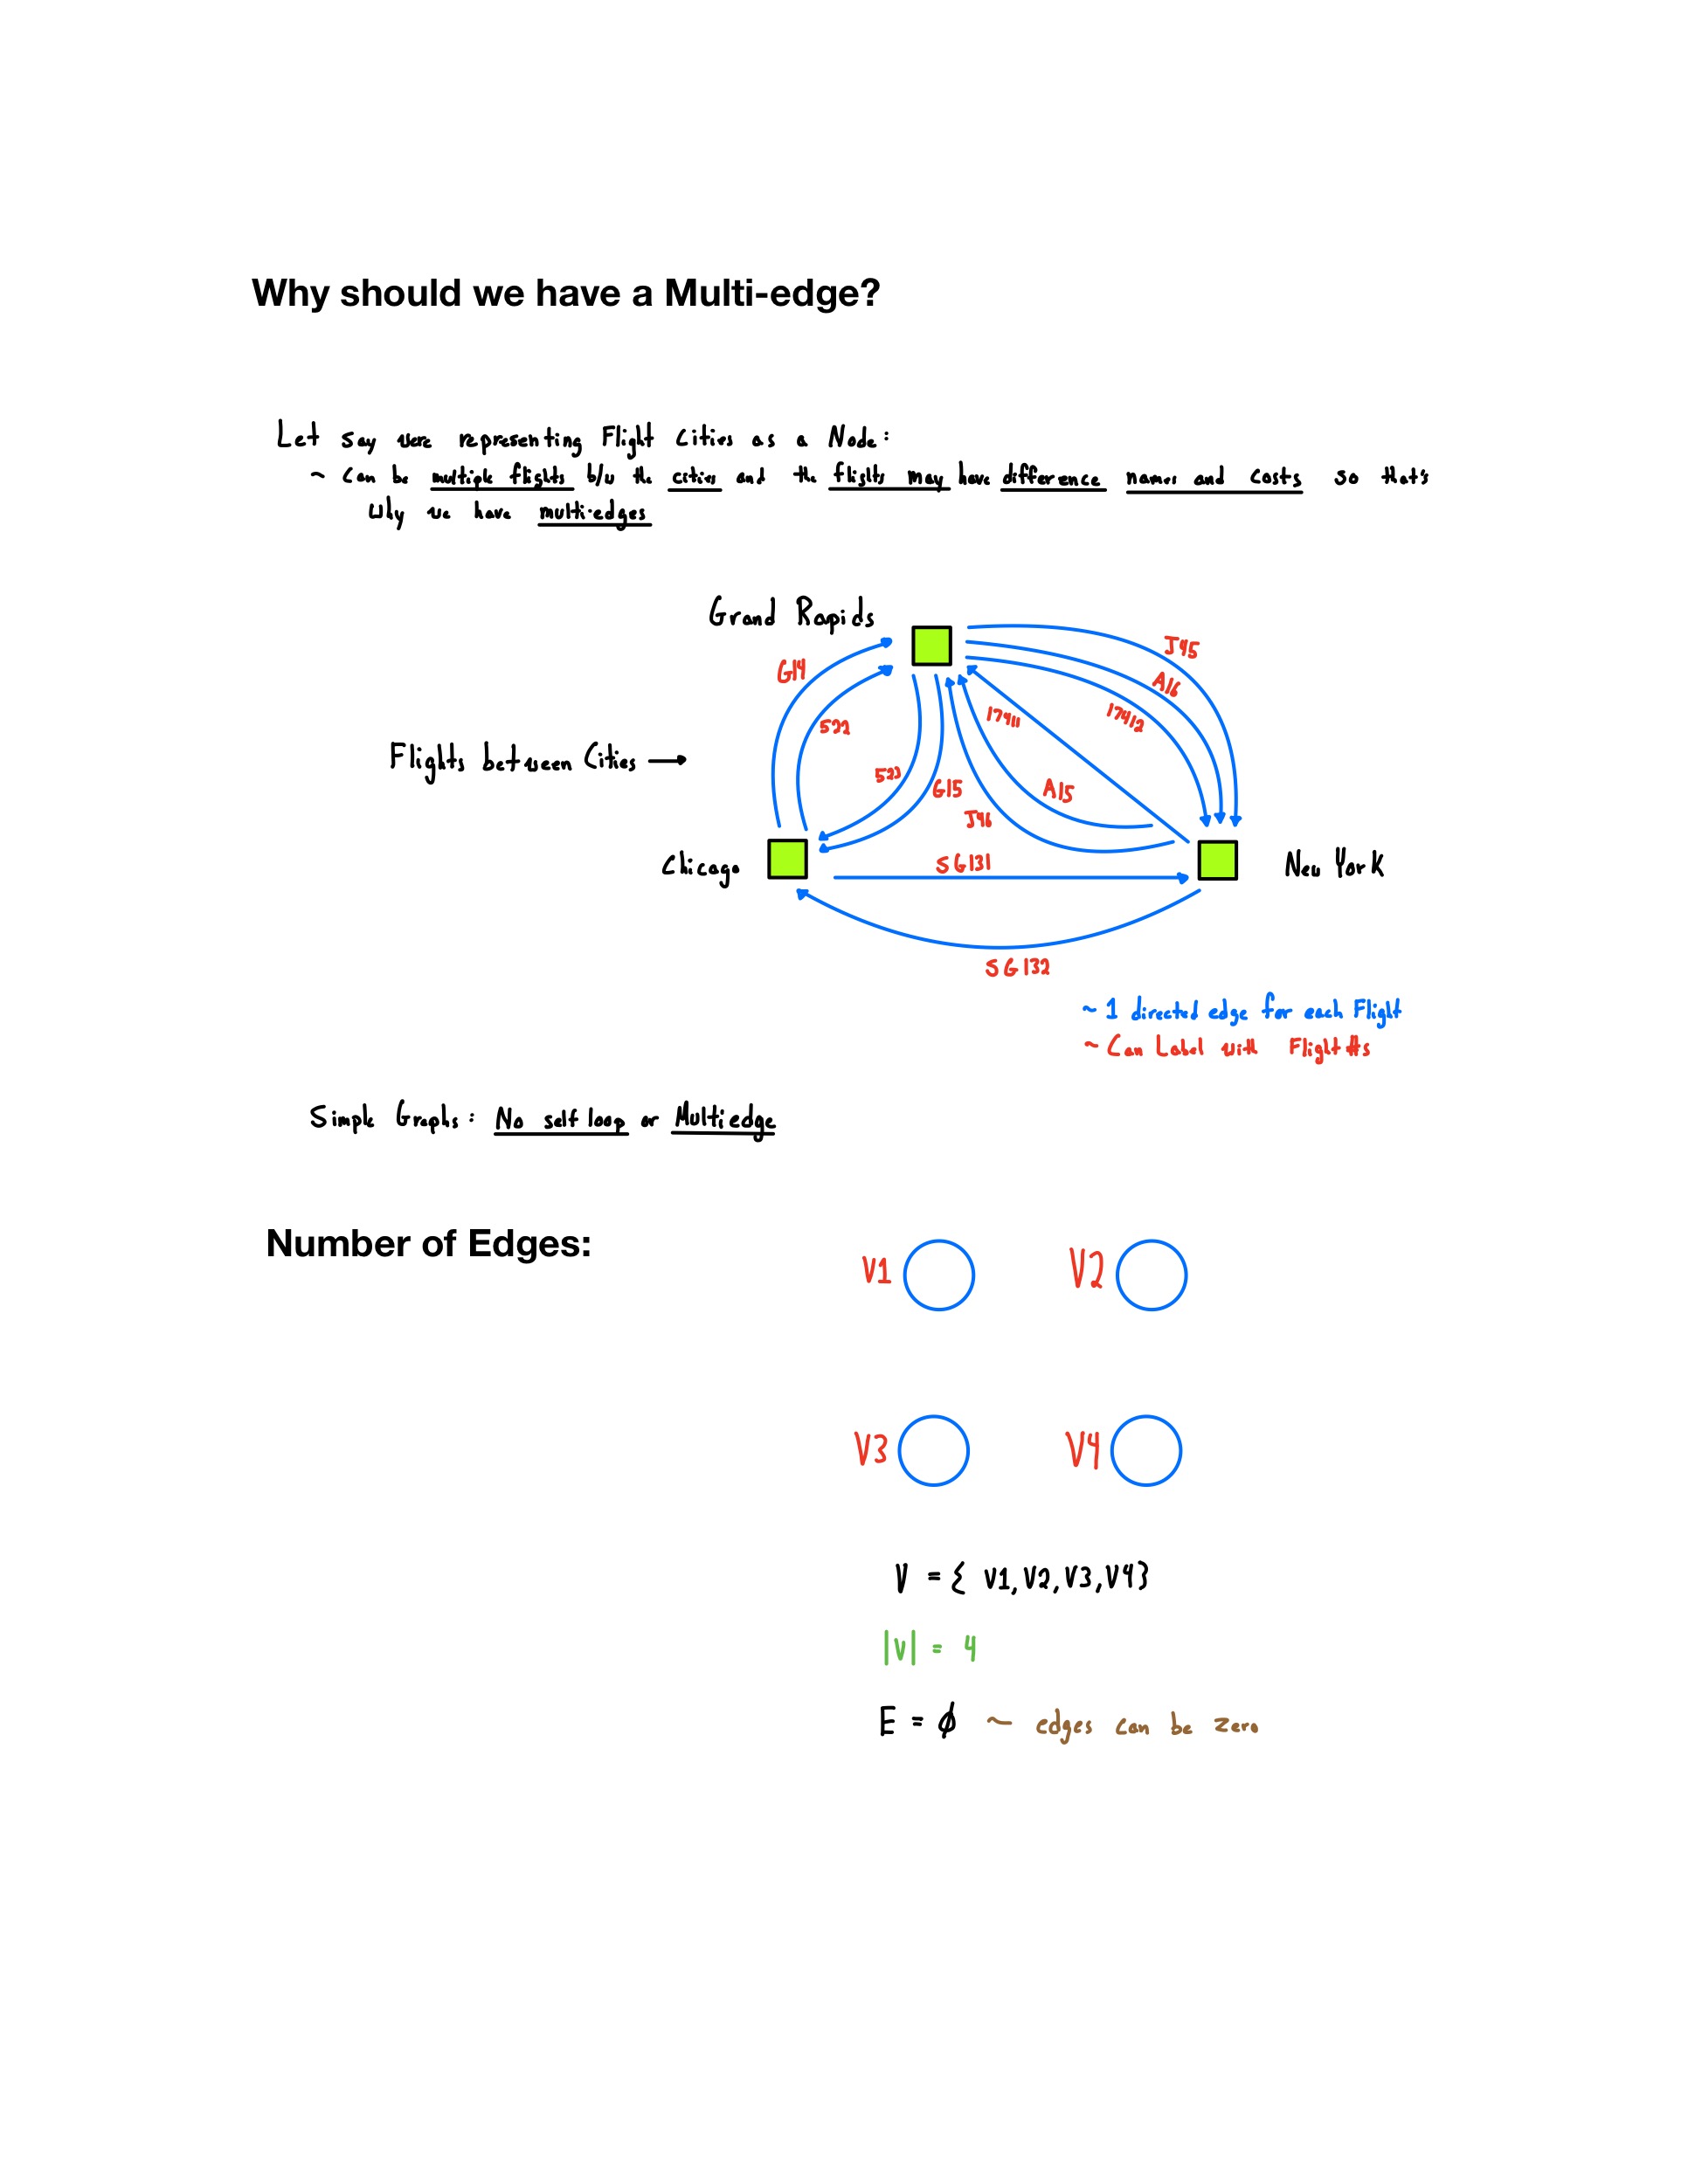 Why should we have a Multi-edge?
Let say were representing Flight Cities as a Node:
~ Can be multiple flights b/w the cities and the flights may have difference names and costs so that's
why we have multi-edges
Grand Rapids
J45
G14
A16
17911
17412
522
Flights between Cities →
523
G15
A15
J46
Chicago
SG131
New York
SG132
~ 1 directed edge for each Flight
~ Can Label with Flight #s
Simple Graphs: No self loop or Multiedge
Number of Edges:
V1
V2
V3
V4
V = { V1, V2, V3, V4}
|V| = 4
E = ϕ ~ edges can be zero